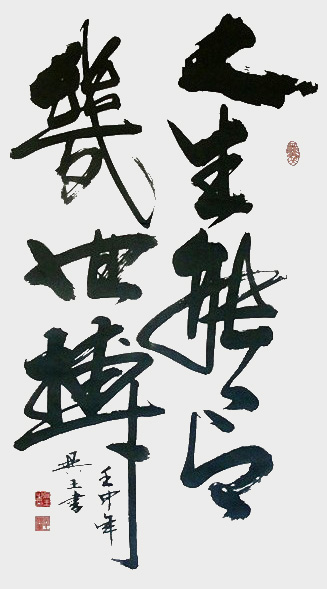 人生能有
幾回搏
壬申年
書